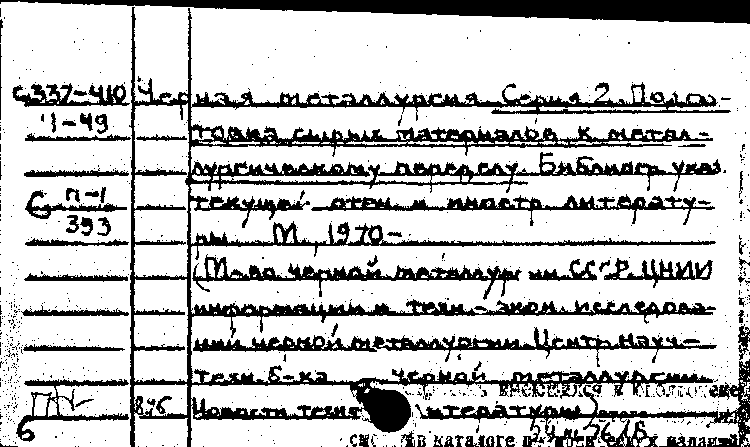 С337-410 Черная металлургия. Серия 2. Подго-
П-49 товка сырых материалов к метал-
лургическому переделу. Библиогр. указ.
С П-1 текущей отеч. и иностр. литерату-
393 ры. М., 1970-
(М-во черной металлургии СССР. ЦНИИ
информации и техн.-экон. исследова-
ний черной металлургии. Центр. науч.-
техн. б-ка черной металлургии.
846 Новости техн литературы)
6
в каталоге